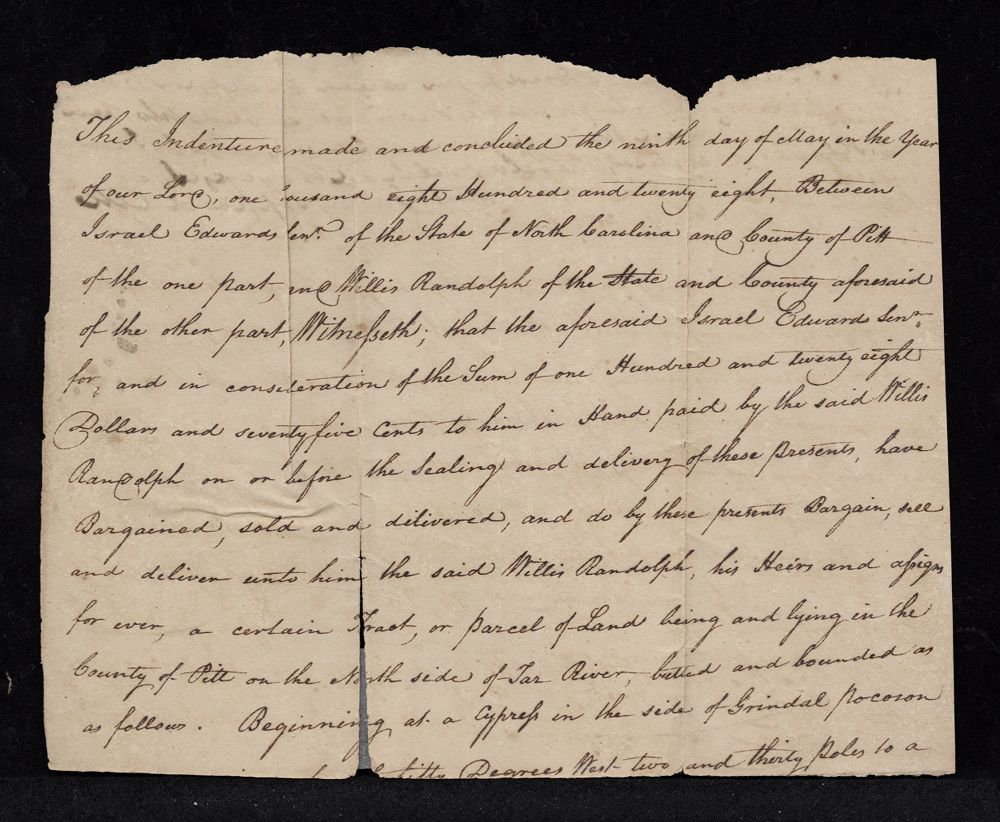 This Indenture made and concluded the ninth day of May in the Year
of our Lord, one ousand eight Hundred and twenty eight, Between
Israel Edwards Senr. of the State of North Carolina and County of Pitt
of the one part, and Willis Randolph of the State and County aforesaid
of the other part, Witnesseth; that the aforesaid Israel Edwards Senr.
for, and in consideration of the Sum of one Hundred and twenty eight
Dollars and seventy five Cents to him in Hand paid by the said Willis
Randolph on or before the Sealing and delivery of these Presents, have
Bargained, sold and delivered, and do by these presents Bargain, sell
and deliver unto him the said Willis Randolph, his Heirs and assigns
for ever, a certain Tract, or parcel of Land being and lying in the
County of Pitt on the North side of Tar River, butted and bounded as
as follows. Beginning at a Cypress in the side of Grindal Pocoson
fifty Degrees West two and thirty Poles to a